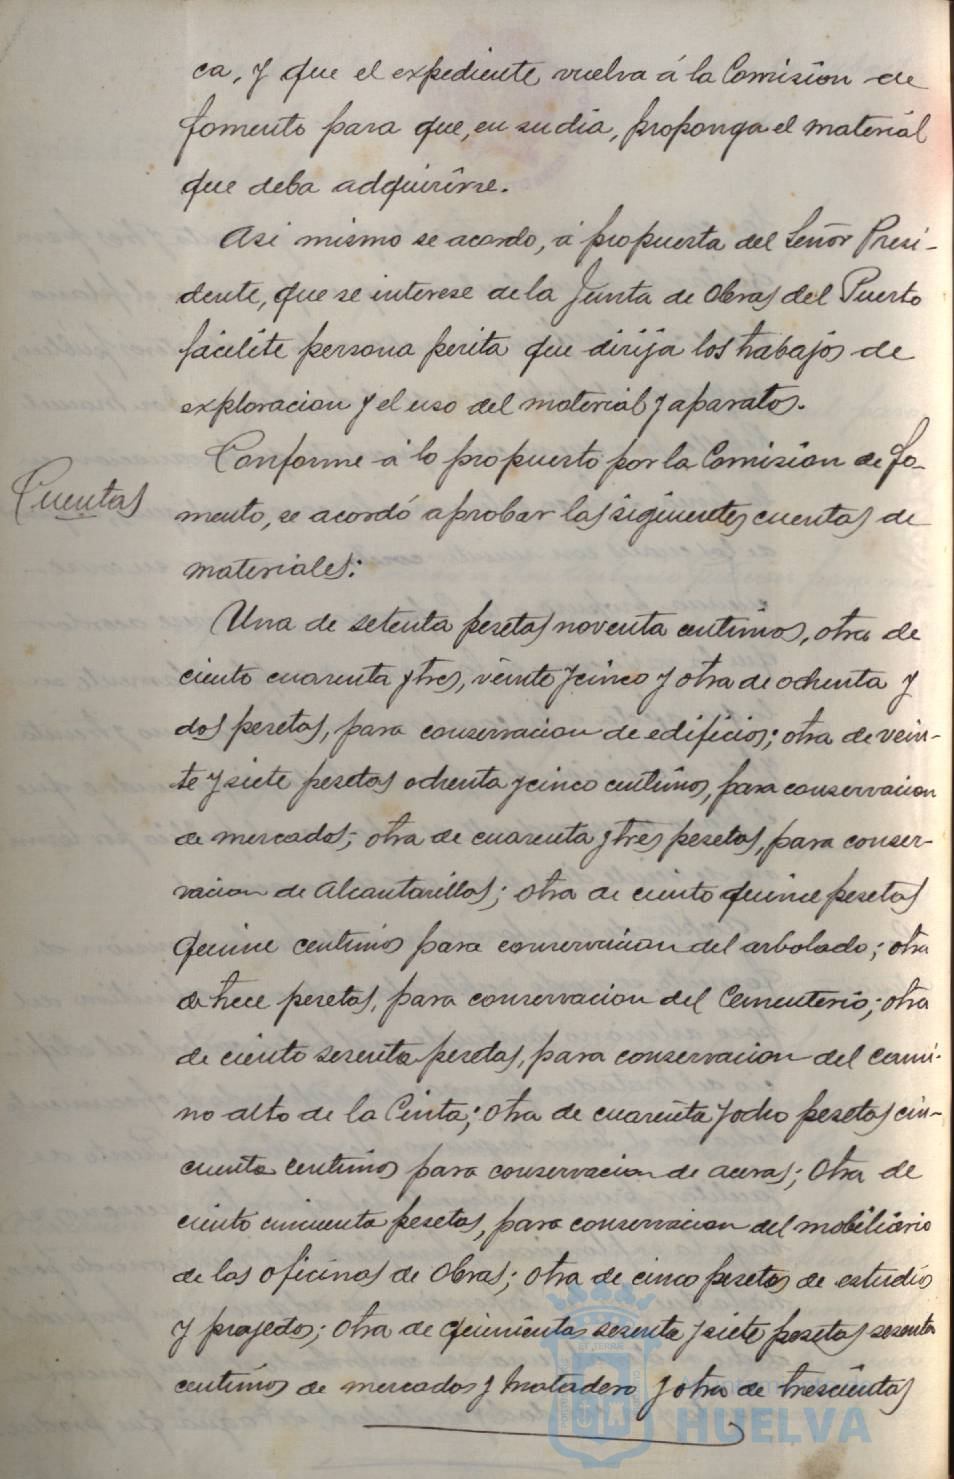 ca, y que el expediente vuelva á la Comisión de
fomento para que, en su dia, proponga el material
que deba adquirirse.
Asi mismo se acordo, á propuesta del Señor Presi-
dente, que se interese de la Junta de Obras del Puerto
facilite persona perita que dirija los trabajos de
exploracion y el uso del material y aparatos.
Conforme á lo propuesto por la Comision de fo-
Cuentas
mento, se acordó aprobar las siguientes cuentas de
materiales:
Una de setenta pesetas noventa centimos, otra de
ciento cuarenta y tres, veinte y cinco y otra de ochenta y
dos pesetas, para conservacion de edificios; otra de vein-
te y siete pesetas ochenta y cinco centimos, para conservacion
de mercados; otra de cuarenta y tres pesetas, para conser-
vacion de Alcantarillas; otra de ciento quince pesetas
quince centimos para conservacion del arbolado; otra
de trece pesetas, para conservacion del Cementerio; otra
de ciento sesenta pesetas, para conservacion del cami-
no alto de la Cinta; otra de cuarenta y ocho pesetas cin-
cuenta centimos para conservacion de aceras; otra de
ciento cincuenta pesetas, para conservacion del mobiliario
de las oficinas de Obras; otra de cinco pesetas de estudios
y proyectos; otra de quinientas sesenta y siete pesetas sesenta
centimos de mercados y matadero y otra de trescientas
Ayuntamiento de
HUELVA